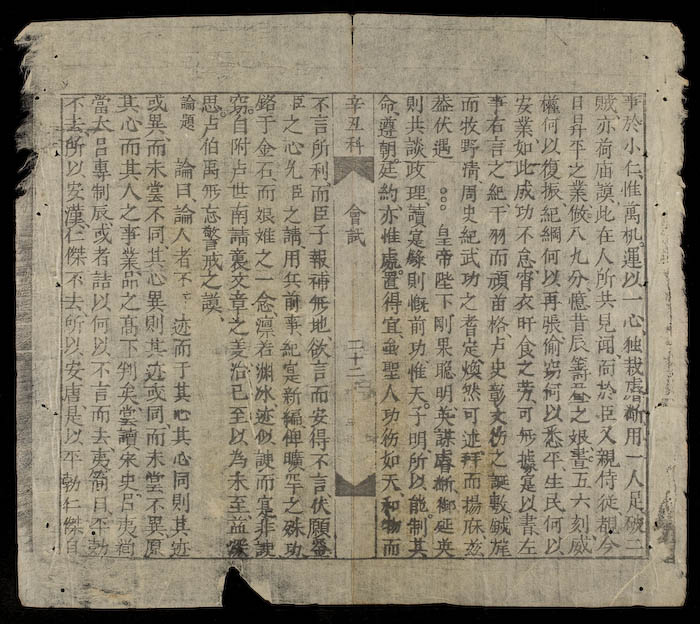 事於小仁惟萬机運以一心独裁睿断用一人足破二
賊亦荷庙謨此在人所共見闻而於臣又親侍従都今
日昇平之業做八九分憶昔辰籌𥁕之娘晝五六刻威
權何以復振紀綱何以再張偷窃何以悉平生民何以
安業如此成功不怠宵衣旰食之劳可無據是以書左
事右言之紀干羽而頑苗格卢史彰文伤之誕敷鉞旄
而牧野清周史紀武功之耆定焕然可述拜而揚庥兹
益伏遇 皇帝陛下剛果聰明英謀睿断御延英
則共談政理讀寔錄則慨前功惟天子明所以能制其
命遵朝廷約亦惟處置得宜虽聖人功伤如天和物而
辛丑科 會試 二十二
不言所利而臣子報補無地欲言而安得不言伏願鉴
臣之心允臣之請用兵前事紀寔新編俾曠卋之殊功
銘于金石而娘难之一念凛若渊冰迹似諛而寔非諛
窃自附卢世南請裒文章之美治已至以為未至益深
思卢伯禹無忘警戒之謨
論題 論曰論人者不 迹而于其心其心同則其迹
或異而未尝不同其心異則其迹或同而未尝不異原
其心而其人之事業品之髙下判矣尝讀宋史吕夷簡
當太吕專制辰或者詰以何以不言而去夷簡曰平勃
不去所以安漢仁傑不去所以安唐是以平勃仁傑自